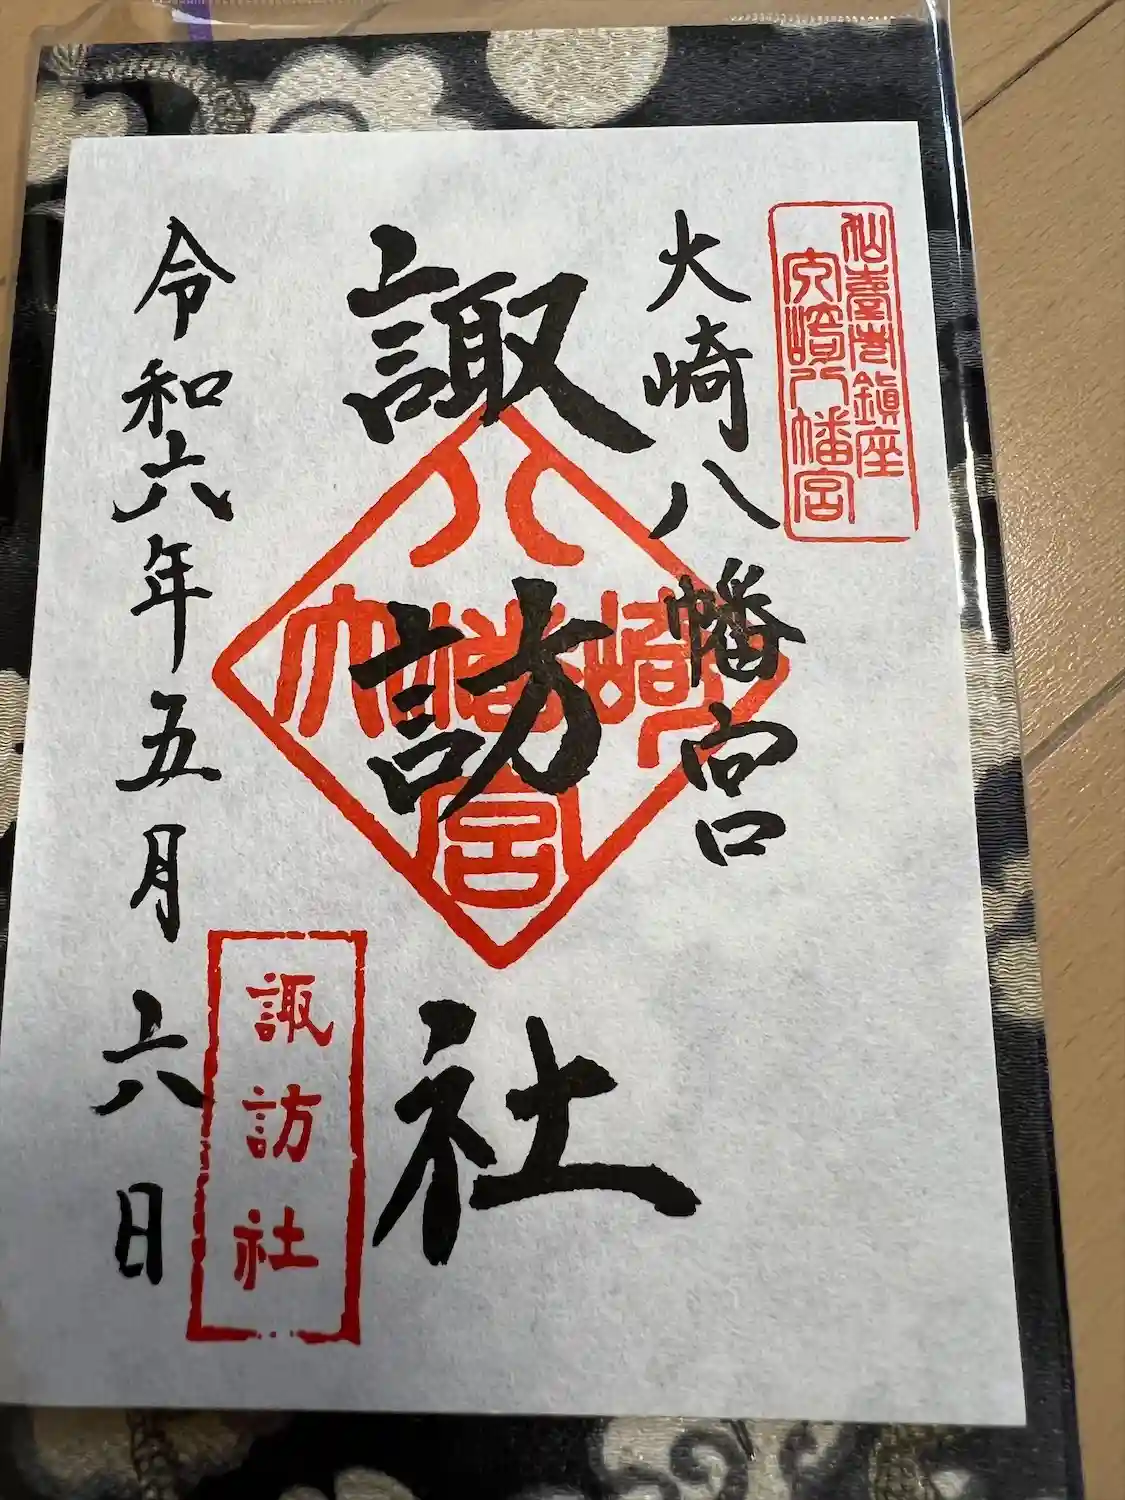 仙臺市鎮座
大崎八幡宮
大崎八幡宮
諏訪社
八
大幡崎
宮
諏訪社
令和六年五月六日